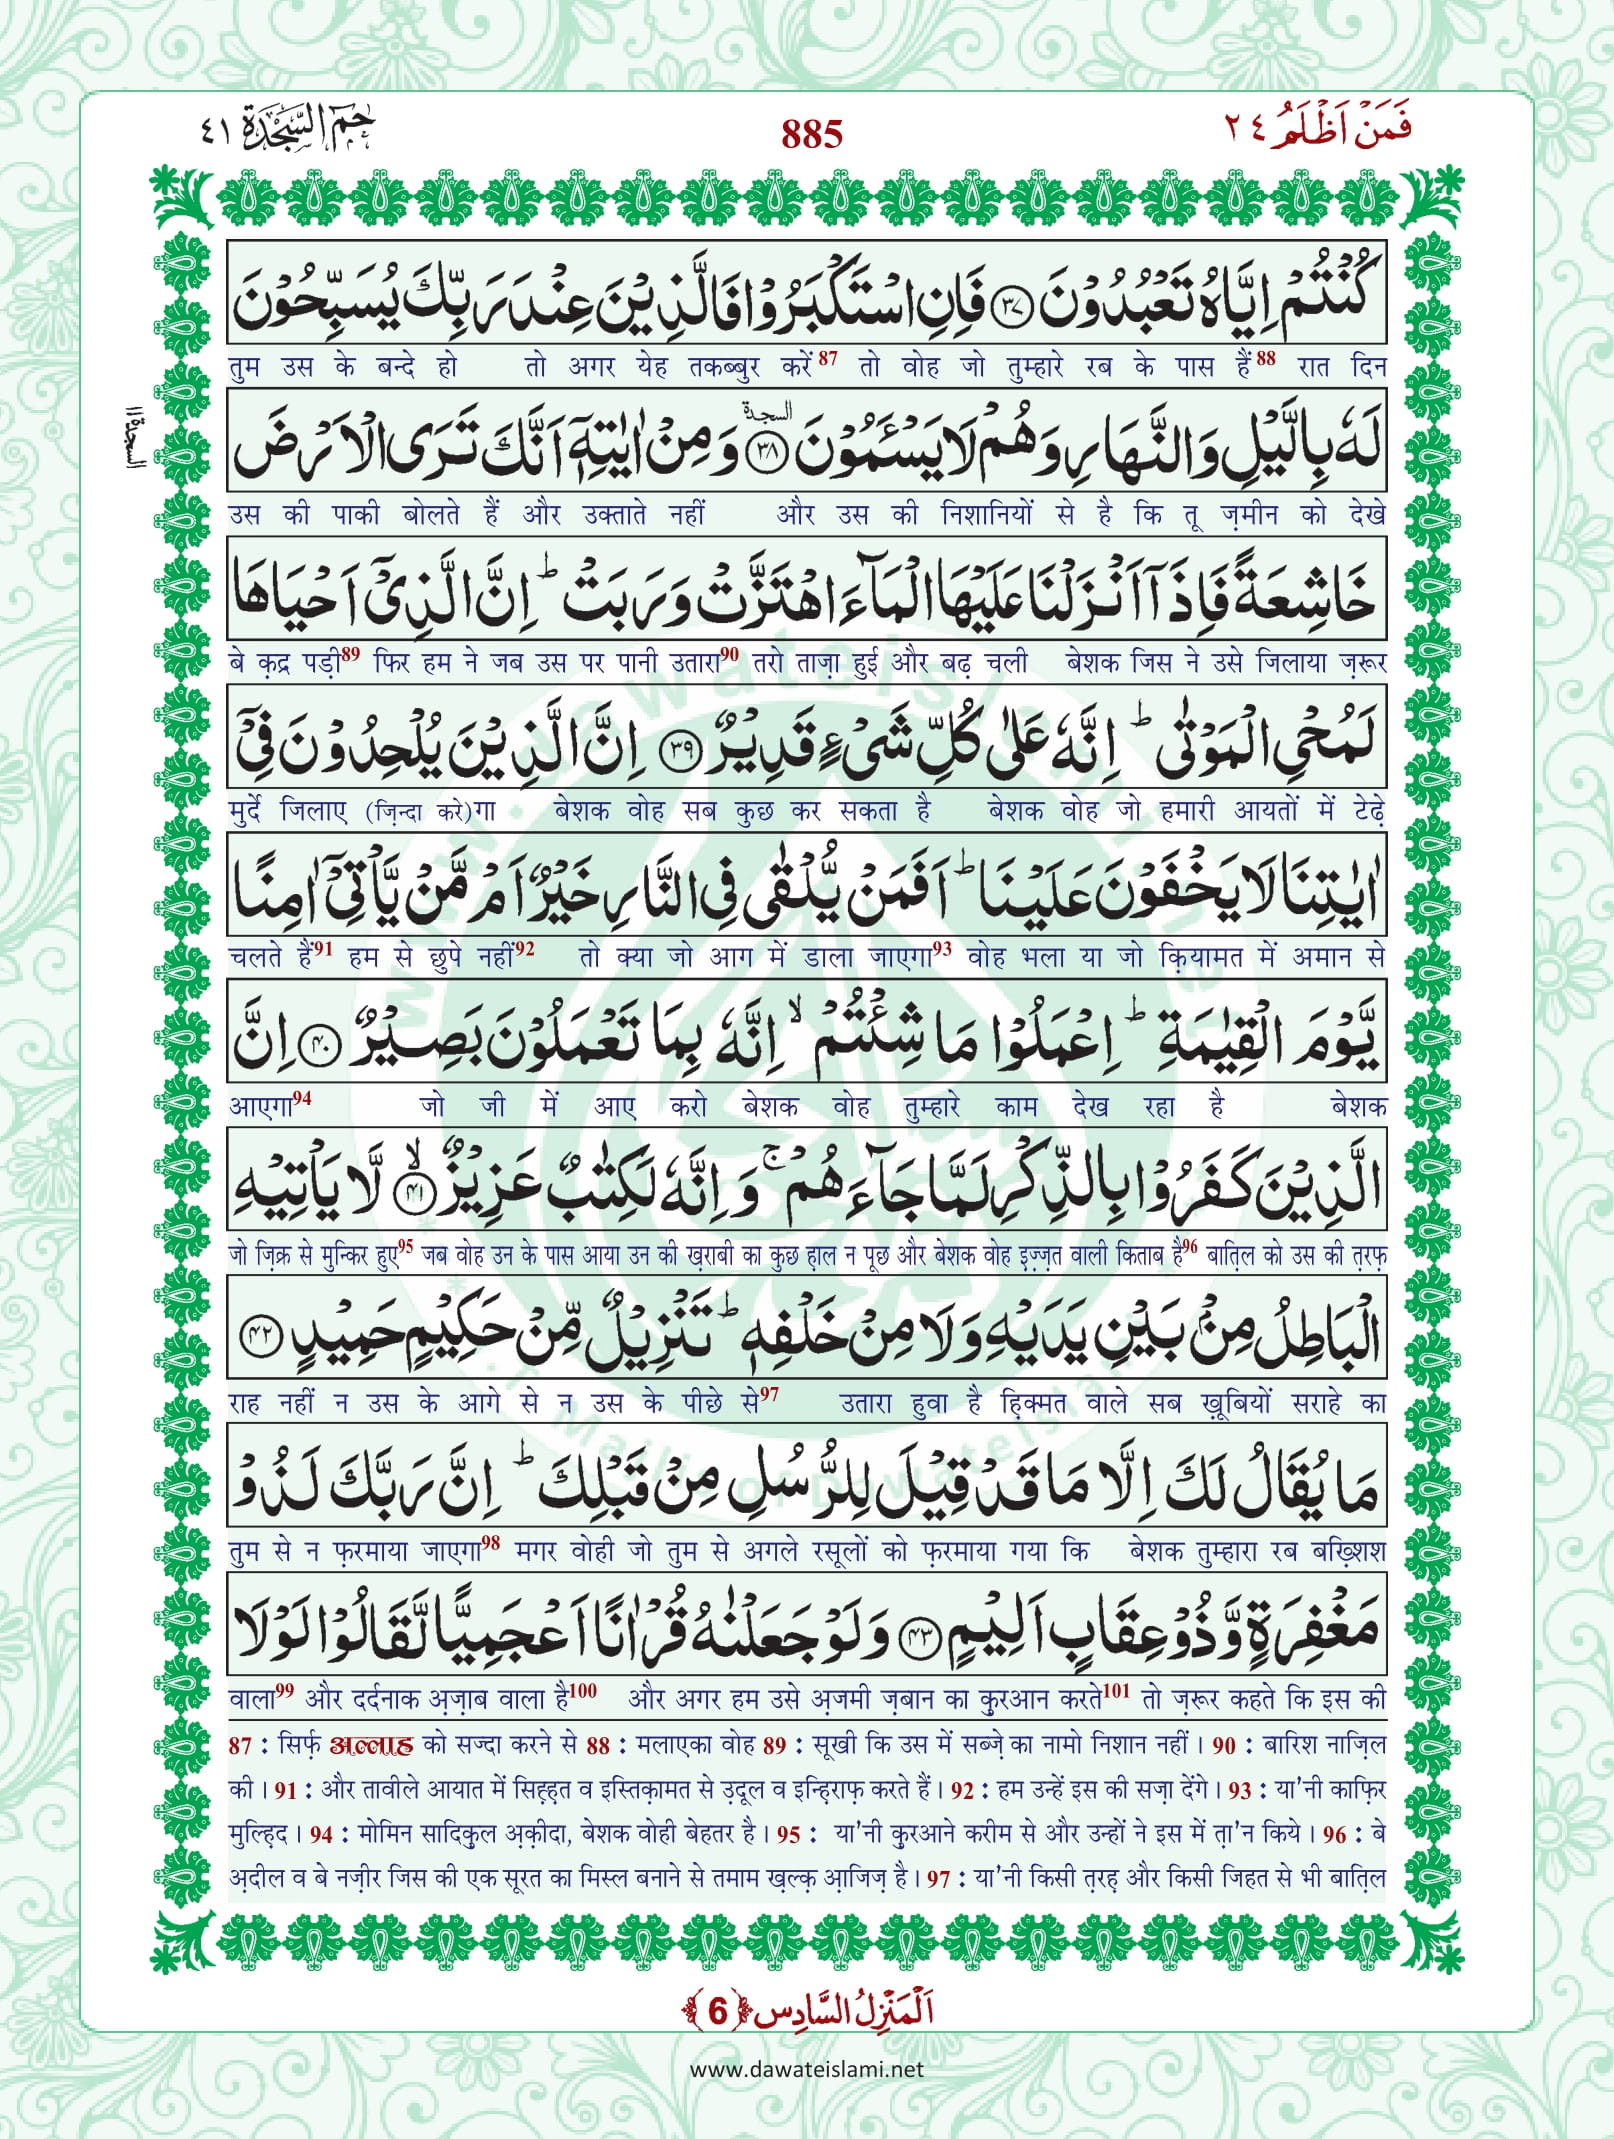 فَمَنْ اَظْلَمُ ٢٤
885
حٰمٓ السَّجْدَۃ ٤١
كُنْتُمْ اِيَّاهُ تَعْبُدُوْنَ ﴿۳۷﴾ فَاِنِ اسْتَكْبَرُوْا فَالَّذِيْنَ عِنْدَ رَبِّكَ يُسَبِّحُوْنَ
तुम उस के बन्दे हो तो अगर येह तकब्बुर करें87 तो वोह जो तुम्हारे रब के पास हैं88 रात दिन
لَهٗ بِالَّيْلِ وَالنَّهَارِ وَهُمْ لَا يَسْـَٔمُوْنَ ﴿۳۸﴾ السجدة وَمِنْ اٰيٰتِهٖۤ اَنَّكَ تَرَى الْاَرْضَ
السجدة ١١
उस की पाकी बोलते हैं और उक्ताते नहीं और उस की निशानियों से है कि तू ज़मीन को देखे
خَاشِعَةً فَاِذَاۤ اَنْزَلْنَا عَلَيْهَا الْمَآءَ اهْتَزَّتْ وَرَبَتْ ؕ اِنَّ الَّذِيْۤ اَحْيَاهَا
बे क़द्र पड़ी89 फिर हम ने जब उस पर पानी उतारा90 तरो ताज़ा हुई और बढ़ चली बेशक जिस ने उसे जिलाया ज़रूर
لَمُحْيِ الْمَوْتٰى ؕ اِنَّهٗ عَلٰى كُلِّ شَيْءٍ قَدِيْرٌ ﴿۳۹﴾ اِنَّ الَّذِيْنَ يُلْحِدُوْنَ فِيْۤ
मुर्दे जिलाए (ज़िन्दा करे)गा बेशक वोह सब कुछ कर सकता है बेशक वोह जो हमारी आयतों में टेढ़े
اٰيٰتِنَا لَا يَخْفَوْنَ عَلَيْنَا ؕ اَفَمَنْ يُّلْقٰى فِي النَّارِ خَيْرٌ اَمْ مَّنْ يَّاْتِيْۤ اٰمِنًا
चलते हैं91 हम से छुपे नहीं92 तो क्या जो आग में डाला जाएगा93 वोह भला या जो क़ियामत में अमान से
يَّوْمَ الْقِيٰمَةِ ؕ اِعْمَلُوْا مَا شِئْتُمْ ۙ اِنَّهٗ بِمَا تَعْمَلُوْنَ بَصِيْرٌ ﴿۴۰﴾ اِنَّ
आएगा94 जो जी में आए करो बेशक वोह तुम्हारे काम देख रहा है बेशक
الَّذِيْنَ كَفَرُوْا بِالذِّكْرِ لَمَّا جَآءَهُمْ ۚ وَاِنَّهٗ لَكِتٰبٌ عَزِيْزٌ ﴿۴۱﴾ ۙ لَّا يَاْتِيْهِ
जो ज़िक्र से मुन्किर हुए95 जब वोह उन के पास आया उन की ख़राबी का कुछ ह़ाल न पूछ और बेशक वोह इ़ज़्ज़त वाली किताब है96 बात़िल को उस की त़रफ़
الْبَاطِلُ مِنْۢ بَيْنِ يَدَيْهِ وَلَا مِنْ خَلْفِهٖ ؕ تَنْزِيْلٌ مِّنْ حَكِيْمٍ حَمِيْدٍ ﴿۴۲﴾
राह नहीं न उस के आगे से न उस के पीछे से97 उतारा हुवा है हि़क्मत वाले सब ख़ूबियों सराहे का
مَا يُقَالُ لَكَ اِلَّا مَا قَدْ قِيْلَ لِلرُّسُلِ مِنْ قَبْلِكَ ؕ اِنَّ رَبَّكَ لَذُوْ
तुम से न फ़रमाया जाएगा98 मगर वोही जो तुम से अगले रसूलों को फ़रमाया गया कि बेशक तुम्हारा रब बख़्शिश
مَغْفِرَةٍ وَّذُوْ عِقَابٍ اَلِيْمٍ ﴿۴۳﴾ وَلَوْ جَعَلْنٰهُ قُرْاٰنًا اَعْجَمِيًّا لَّقَالُوْا لَوْلَا
वाला99 और दर्दनाक अ़ज़ाब वाला है100 और अगर हम उसे अ़जमी ज़बान का क़ुरआन करते101 तो ज़रूर कहते कि इस की
87 : सिर्फ़ अल्लाह को सज्दा करने से 88 : मलाएका वोह 89 : सूखी कि उस में सब्ज़े का नामो निशान नहीं । 90 : बारिश नाज़िल
की । 91 : और तावीले आयात में सिह़्ह़त व इस्तिक़ामत से उ़दूल व इन्हि़राफ़ करते हैं । 92 : हम उन्हें इस की सज़ा देंगे । 93 : या'नी काफ़िर
मुल्हि़द । 94 : मोमिन सादिकुल अ़क़ीदा, बेशक वोही बेहतर है । 95 : या'नी क़ुरआने करीम से और उन्हों ने इस में त़ा'न किये । 96 : बे
अ़दील व बे नज़ीर जिस की एक सूरत का मिस्ल बनाने से तमाम ख़ल्क़ आ़जिज़ है । 97 : या'नी किसी त़रह़ और किसी जिहत से भी बात़िल
اَلْمَنْزِلُ السَّادِس ﴿6﴾
www.dawateislami.net